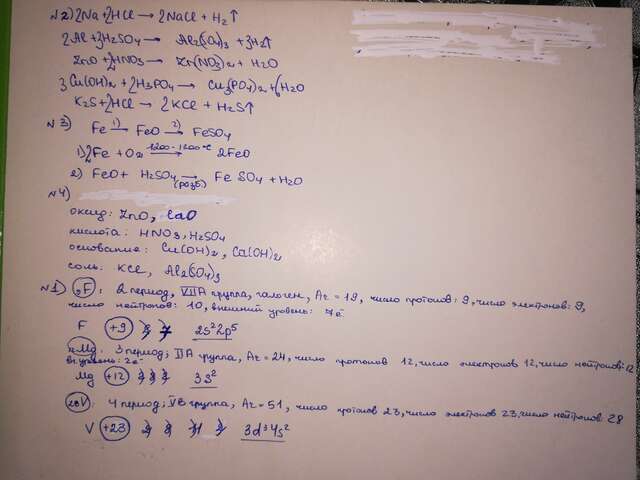 №2) 2Na + 2HCl → 2NaCl + H₂↑
2Al + 3H₂SO₄ → Al₂(SO₄)₃ + 3H₂↑
ZnO + 2HNO₃ → Zn(NO₃)₂ + H₂O
3Cu(OH)₂ + 2H₃PO₄ → Cu₃(PO₄)₂ + 6H₂O
K₂S + 2HCl → 2KCl + H₂S↑
№3) Fe 1)→ FeO 2)→ FeSO₄
1) 2Fe + O₂ 1200-1300°C→ 2FeO
2) FeO + H₂SO₄ (разб)→ FeSO₄ + H₂O
№4)
оксид: ZnO, CaO
кислота: HNO₃, H₂SO₄
основание: Cu(OH)₂, Ca(OH)₂
соль: KCl, Al₂(SO₄)₃
№1) ₉F: 2 период, VIIA группа, галоген, Ar = 19, число протонов: 9, число электронов: 9,
число нейтронов: 10, внешний уровень: 7e
F +9 2 7 2s²2p⁵
₁₂Mg: 3 период, IIA группа, Ar = 24, число протонов 12, число электронов 12, число нейтронов: 12
вн. уровень: 2e
Mg +12 3s²
₂₃V: 4 период, VB группа, Ar = 51, число протонов 23, число электронов 23, число нейтронов: 28
V +23 2 8 11 2 3d³4s²